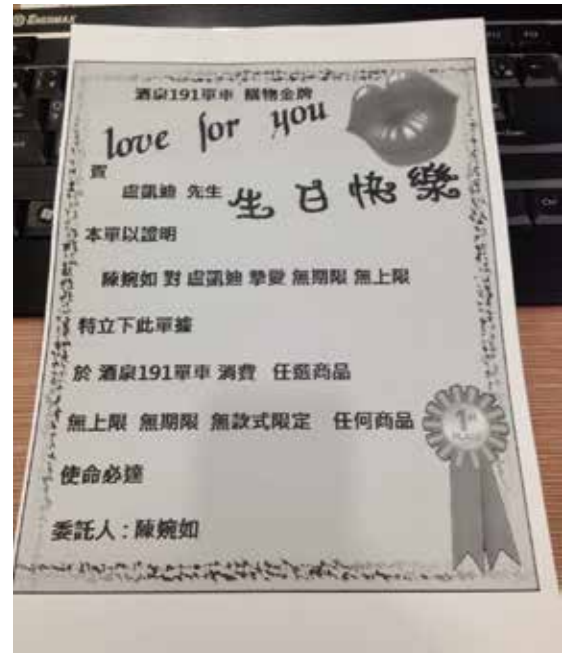 酒泉191單車 購物金牌
love for you
賀
盧凱迪 先生 生日快樂
本單以證明
陳婉如 對 盧凱迪 摯愛 無期限 無上限
特立下此單據
於 酒泉191單車 消費 任選商品
無上限 無期限 無款式限定 任何商品
使命必達
委託人：陳婉如
1st
PLACE